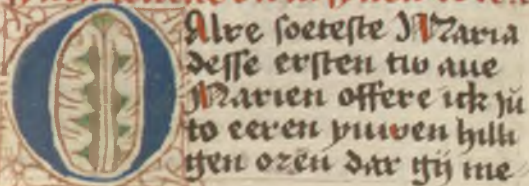 O Alre soeteste Maria
desse ersten two aue
Marien offere ick ju
to eeren yuwen hilli
gen oren dar gij me